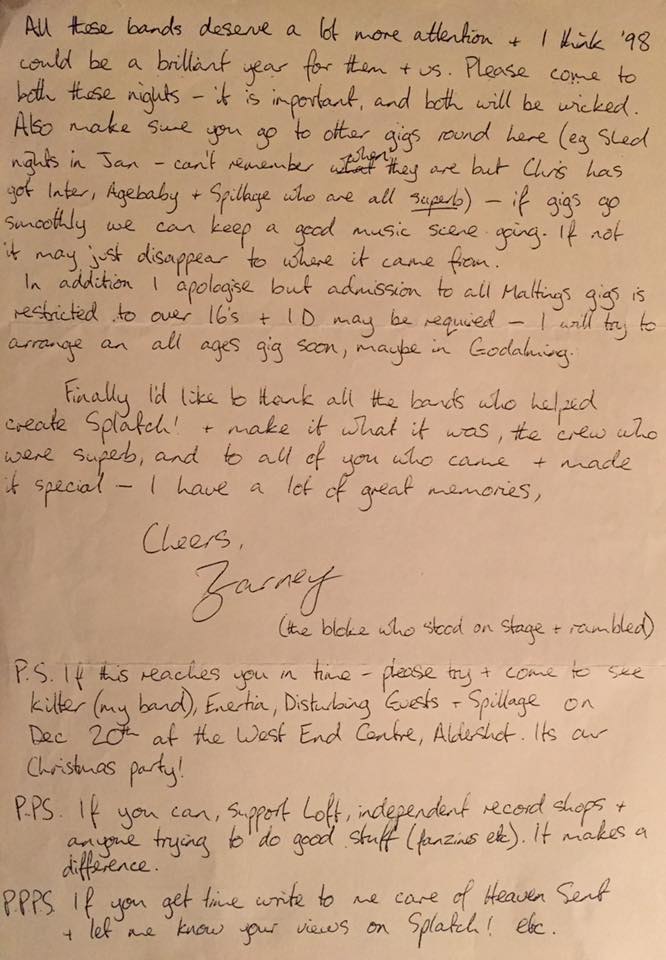 All these bands deserve a lot more attention + I think '98
could be a brilliant year for them + us. Please come to
both those nights – it is important, and both will be wicked.
Also make sure you go to other gigs round here (eg Sled
nights in Jan – can't remember when they are but Chris has
got Inter, Agebaby + Spillage who are all superb) – if gigs go
smoothly we can keep a good music scene going. If not
it may just disappear to where it came from.
In addition I apologise but admission to all Maltings gigs is
restricted to over 16's + ID may be required – I will try to
arrange an all ages gig soon, maybe in Godalming.
Finally I'd like to thank all the bands who helped
create Splatch! + make it what it was, the crew who
were superb, and to all of you who came + made
it special – I have a lot of great memories,
Cheers,
Zarney
(the bloke who stood on stage + rambled)
P.S. If this reaches you in time – please try + come to see
Killer (my band), Enertia, Disturbing Guests + Spillage on
Dec 20th at the West End Centre, Aldershot. Its our
Christmas party!
P.PS. If you can, support Loft, independent record shops +
anyone trying to do good stuff (fanzines etc). It makes a
difference.
P.P.P.S. If you get time write to me care of Heaven Sent
+ let me know your views on Splatch! etc.